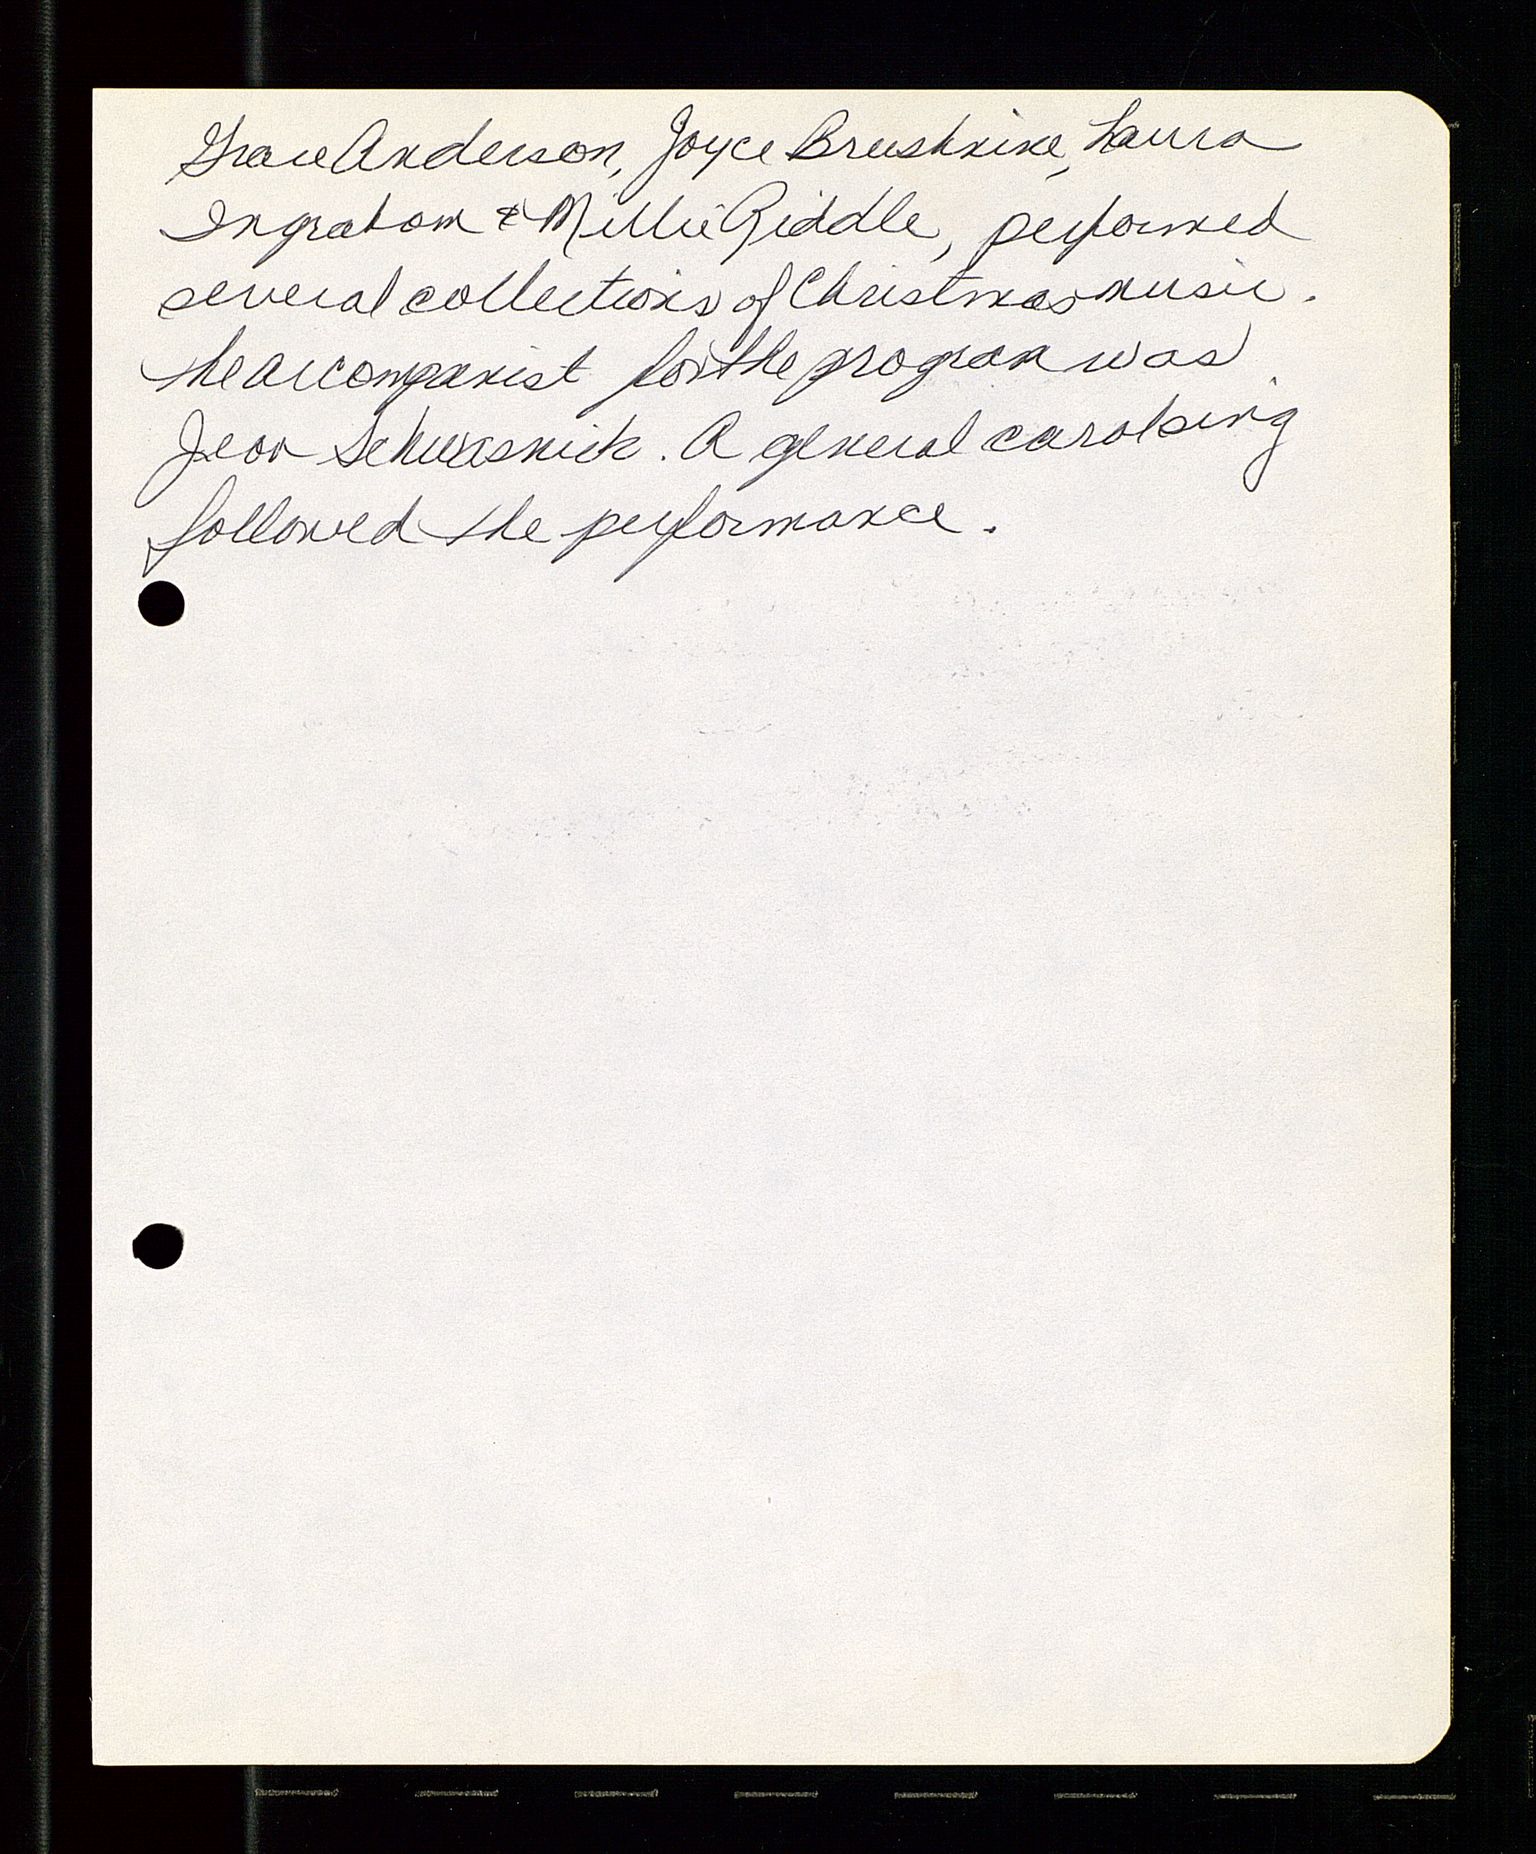 Grace Anderson, Joyce Brushnine, Laura
Ingraham & Millie Riddle, performed
several collections of Christmas music.
The accompanist for the program was
Jean. A general carol sing
followed the performance.